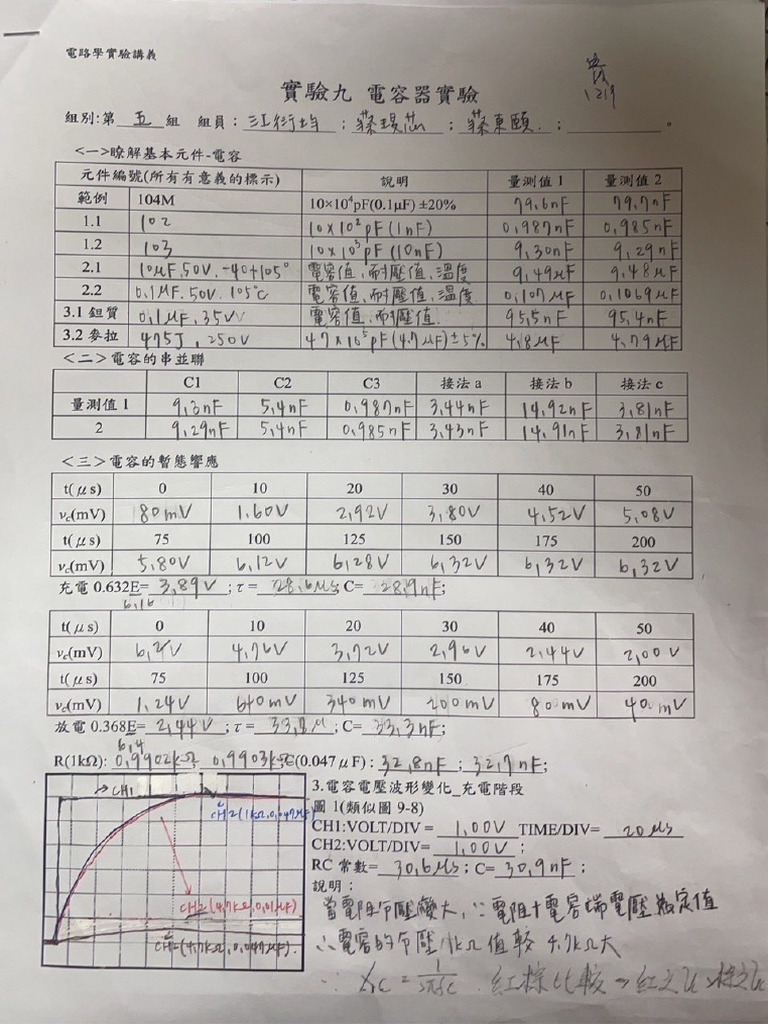 電路學實驗講義
1219
實驗九 電容器實驗
組別:第 五 組 組員: 江衍均 ; ; 東頤 ; 。
<一>瞭解基本元件-電容
元件編號(所有有意義的標示) 說明 量測值 1 量測值 2
範例 104M 10×10⁴pF(0.1μF) ±20% 79.6nF 79.7nF
1.1 102 10×10²pF(1nF) 0.987nF 0.985nF
1.2 103 10×10³pF(10nF) 9.30nF 9.29nF
2.1 10μF.50V.-40+105° 電容值、耐壓值、溫度 9.49μF 9.48μF
2.2 0.1μF.50V.105°C 電容值、耐壓值、溫度 0.107μF 0.1069μF
3.1 鉭質 0.1μF.35V 電容值、耐壓值. 95.5nF 95.4nF
3.2 麥拉 475J, 250V 47×10⁵pF(4.7μF)±5% 4.8μF 4.79μF
<二>電容的串並聯
C1 C2 C3 接法 a 接法 b 接法 c
量測值 1 9.3nF 5.4nF 0.987nF 3.44nF 14.92nF 3.81nF
2 9.29nF 5.4nF 0.985nF 3.43nF 14.91nF 3.81nF
<三>電容的暫態響應
t(μs) 0 10 20 30 40 50
vc(mV) 80mV 1.60V 2.92V 3.80V 4.52V 5.08V
t(μs) 75 100 125 150 175 200
vc(mV) 5.80V 6.12V 6.28V 6.32V 6.32V 6.32V
充電 0.632E= 3.89V ; τ= 28.6μs; C= 28.9nF;
6.16
t(μs) 0 10 20 30 40 50
vc(mV) 6.2V 4.76V 3.72V 2.96V 2.44V 2.00V
t(μs) 75 100 125 150 175 200
vc(mV) 1.24V 640mV 340mV 200mV 80mV 40mV
放電 0.368E= 2.44V ; τ= ; C= 33.3nF;
6.4
R(1kΩ): 0.9902kΩ 0.9903kΩ C(0.047μF): 32.8nF ; 32.7nF;
→CH1
CH2(1kΩ,0.047μF)
CH2(4.7kΩ,0.01μF)
CH2(4.7kΩ,0.047μF).
3.電容電壓波形變化_充電階段
圖 1(類似圖 9-8)
CH1:VOLT/DIV = 1.00V TIME/DIV= 20μs
CH2:VOLT/DIV = 1.00V ;
RC 常數= 30.6μs; C= 30.9nF;
說明:
當電阻分壓變大,∵電阻+電容端電壓為定值
∴電容的分壓1kΩ值較 4.7kΩ大
∵ Xc = 1/2πfC . 紅棕比較→紅之Vc>棕之Vc